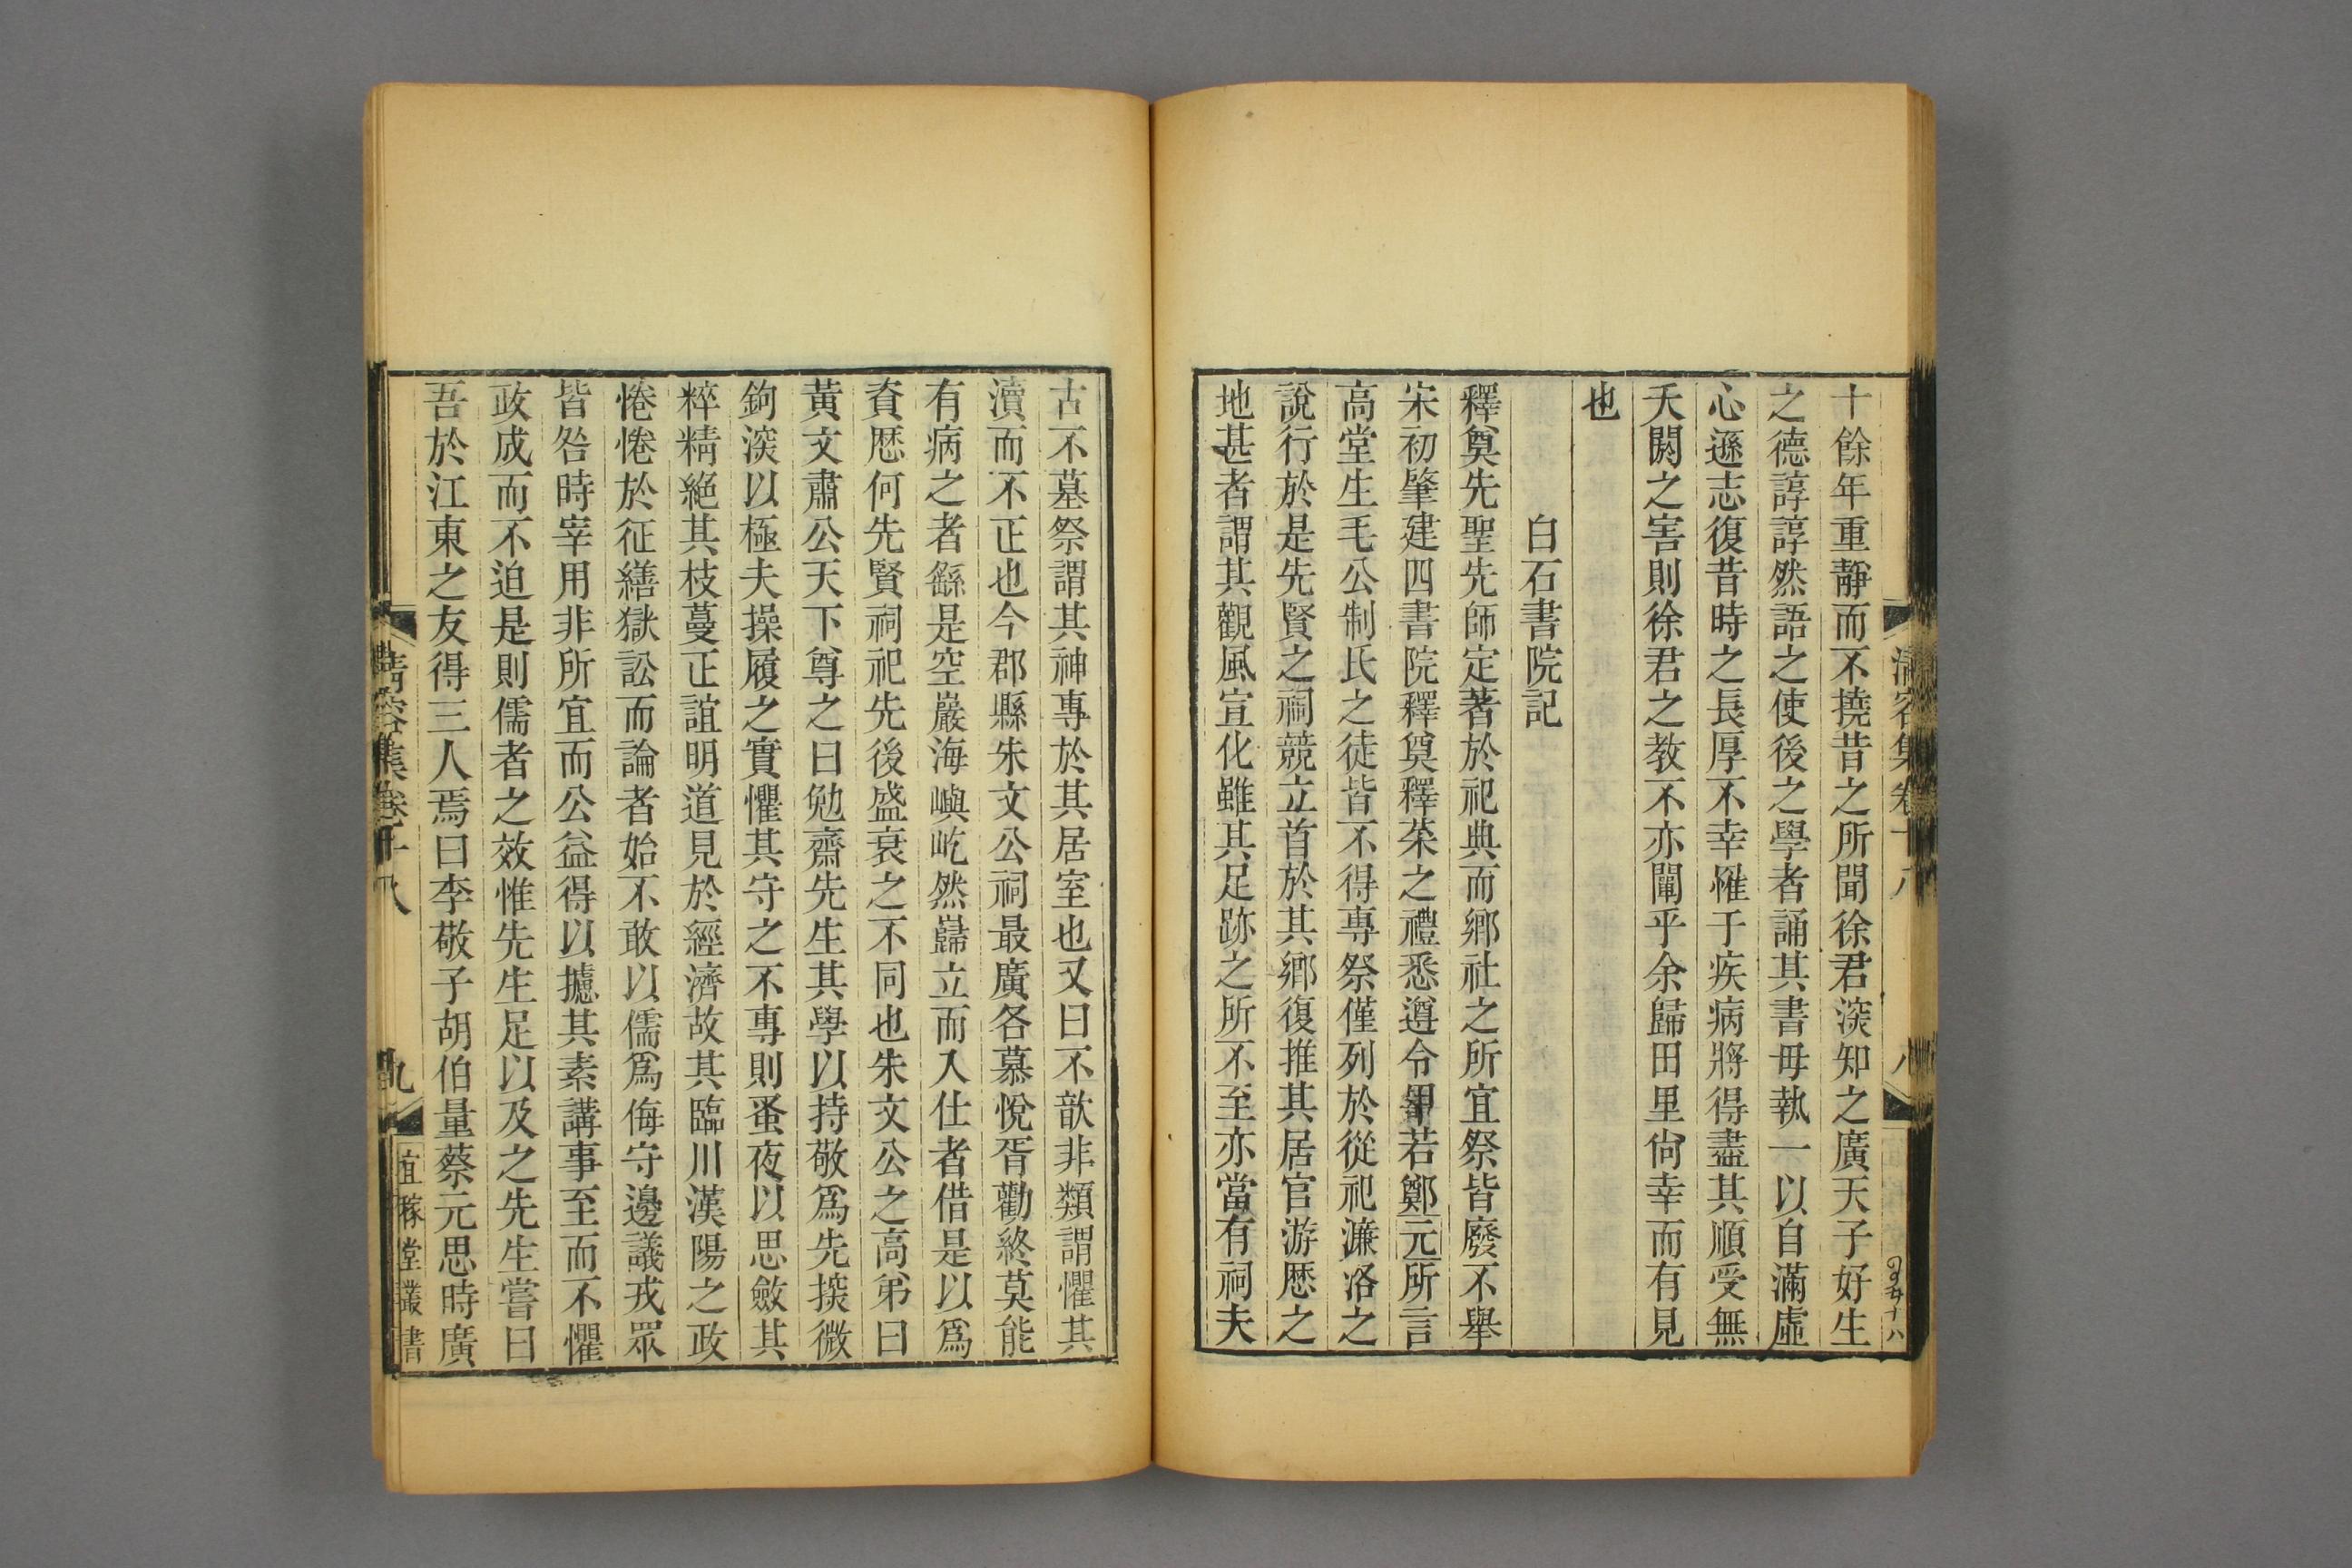 十餘年重靜而不撓昔之所聞徐君深知之廣天子好生
之德諄諄然語之使後之學者誦其書毋執一以自滿虛
心遜志復昔時之長厚不幸罹于疾病將得盡其順受無
夭閼之害則徐君之教不亦闡乎余歸田里尙幸而有見
也
白石書院記
釋奠先聖先師定著於祀典而鄉社之所宜祭皆廢不舉
宋初肇建四書院釋奠釋菜之禮悉遵令甲若鄭元所言
高堂生毛公制氏之徒皆不得專祭僅列於從祀濂洛之
說行於是先賢之祠競立首於其鄉復推其居官游歷之
地甚者謂其觀風宣化雖其足跡之所不至亦當有祠夫
古不墓祭謂其神專於其居室也又曰不歆非類謂懼其
瀆而不正也今郡縣朱文公祠最廣各慕悅胥勸終莫能
有病之者繇是空巖海嶼屹然巋立而入仕者借是以爲
資歷何先賢祠祀先後盛衰之不同也朱文公之高弟曰
黃文肅公天下尊之曰勉齋先生其學以持敬爲先探微
鉤深以極夫操履之實懼其守之不專則蚤夜以思斂其
粹精絕其枝蔓正誼明道見於經濟故其臨川漢陽之政
惓惓於征繕獄訟而論者始不敢以儒爲侮守邊議戎眾
皆咎時宰用非所宜而公益得以攄其素講事至而不懼
政成而不迫是則儒者之效惟先生足以及之先生嘗曰
吾於江東之友得三人焉曰李敬子胡伯量蔡元思時廣
清容集卷十八
九
宜稼堂叢書